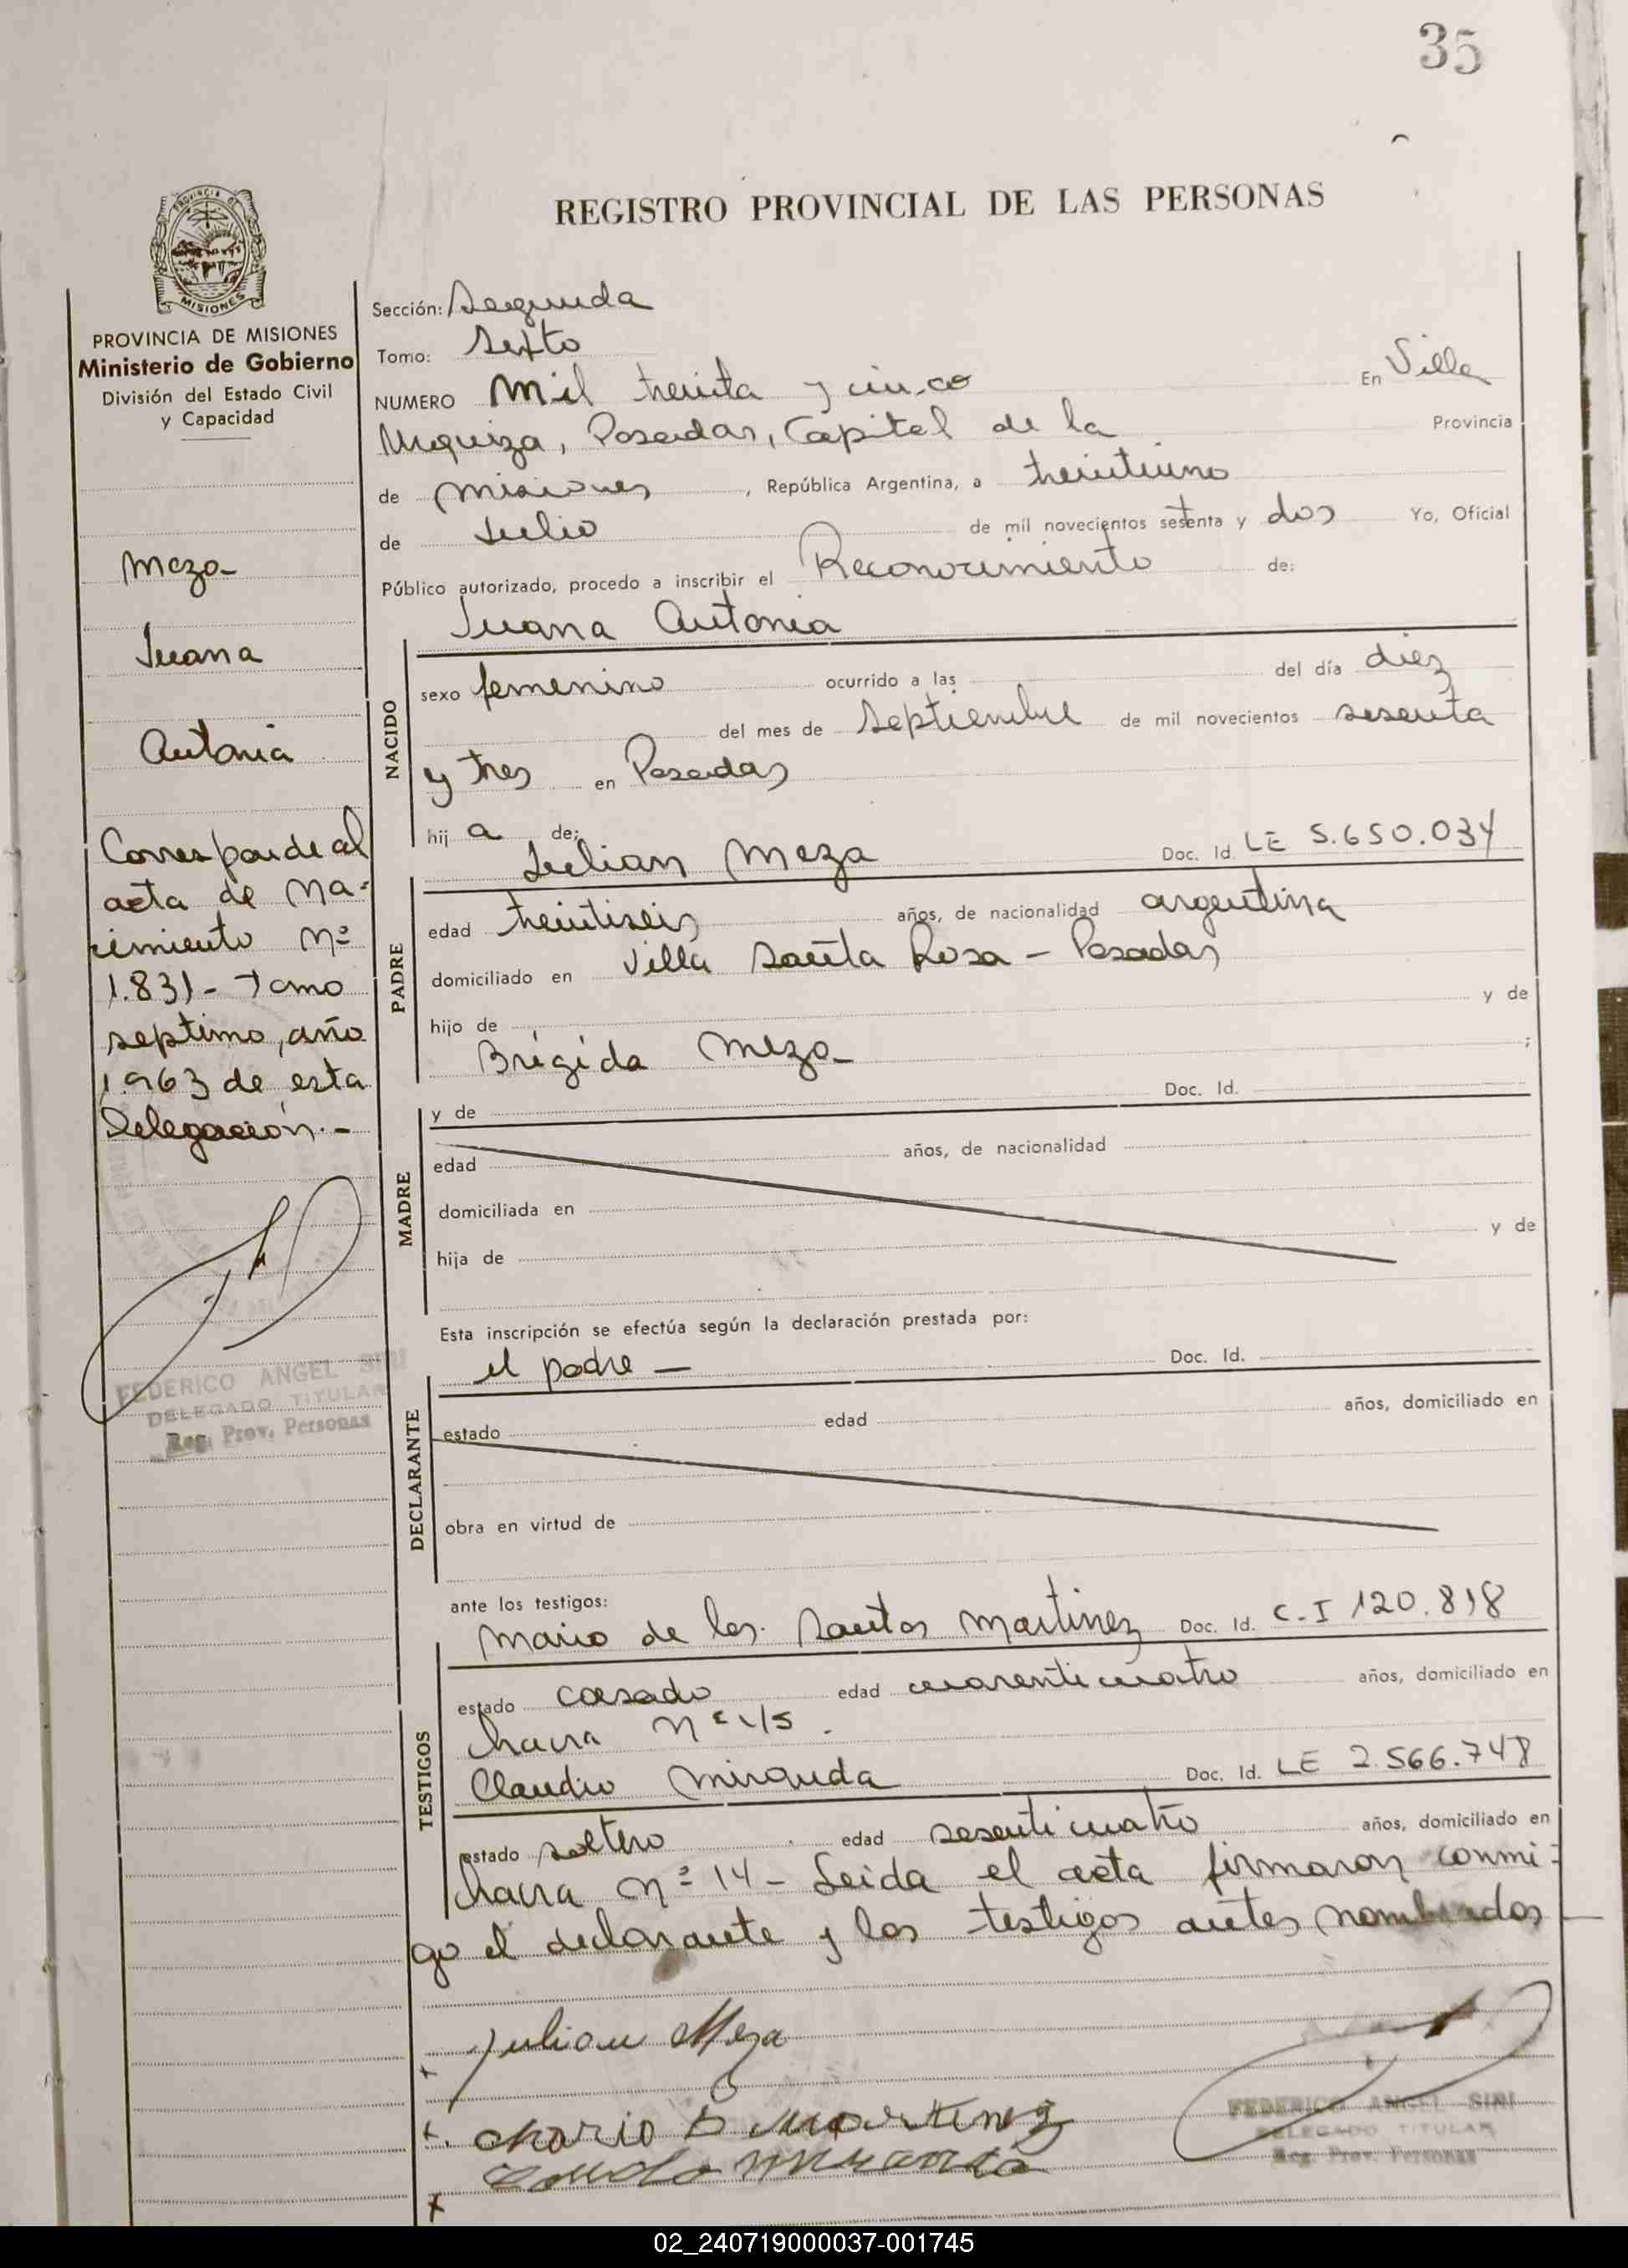 35
REGISTRO PROVINCIAL DE LAS PERSONAS
PROVINCIA DE
MISIONES
PROVINCIA DE MISIONES
Ministerio de Gobierno
División del Estado Civil
y Capacidad
Meza
Juana
Antonia
Corresponde al
acta de Na-
cimiento Nº
1.831 - Tomo
septimo, año
1.963 de esta
Delegación.-
FEDERICO ANGEL SIRI
DELEGADO TITULAR
Reg. Prov. Personas
Sección: Segunda
Tomo: Sexto
NUMERO Mil treinta y cinco En Villa
Urquiza, Posadas, Capital de la Provincia
de Misiones, República Argentina, a treintiuno
de Julio de mil novecientos setenta y dos Yo, Oficial
Público autorizado, procedo a inscribir el Reconocimiento de:
Juana Antonia
NACIDO
sexo femenino ocurrido a las del día diez
del mes de Septiembre de mil novecientos sesenta
y tres en Posadas
hij a de:
Julian Meza Doc. Id. LE 5.650.034
PADRE
edad treintiseis años, de nacionalidad argentina
domiciliado en Villa Santa Rosa - Posadas
hijo de y de
Brígida Meza ;
y de Doc. Id.
MADRE
edad años, de nacionalidad
domiciliada en
hija de y de
Esta inscripción se efectúa según la declaración prestada por:
el padre — Doc. Id.
DECLARANTE
estado edad años, domiciliado en
obra en virtud de
ante los testigos:
Mario de los Santos Martinez Doc. Id. C.I 120.818
TESTIGOS
estado casado edad cuarenticuatro años, domiciliado en
chacra Nº
Claudio Miranda Doc. Id. LE 2.566.748
estado soltero edad sesenticuatro años, domiciliado en
chacra Nº 14 - Leida el acta firmaron conmi-
go el declarante y los testigos antes nombrados
Julian Meza
Mario D Martinez
Claudio Miranda
FEDERICO ANGEL SIRI
DELEGADO TITULAR
Reg. Prov. Personas
02_240719000037-001745